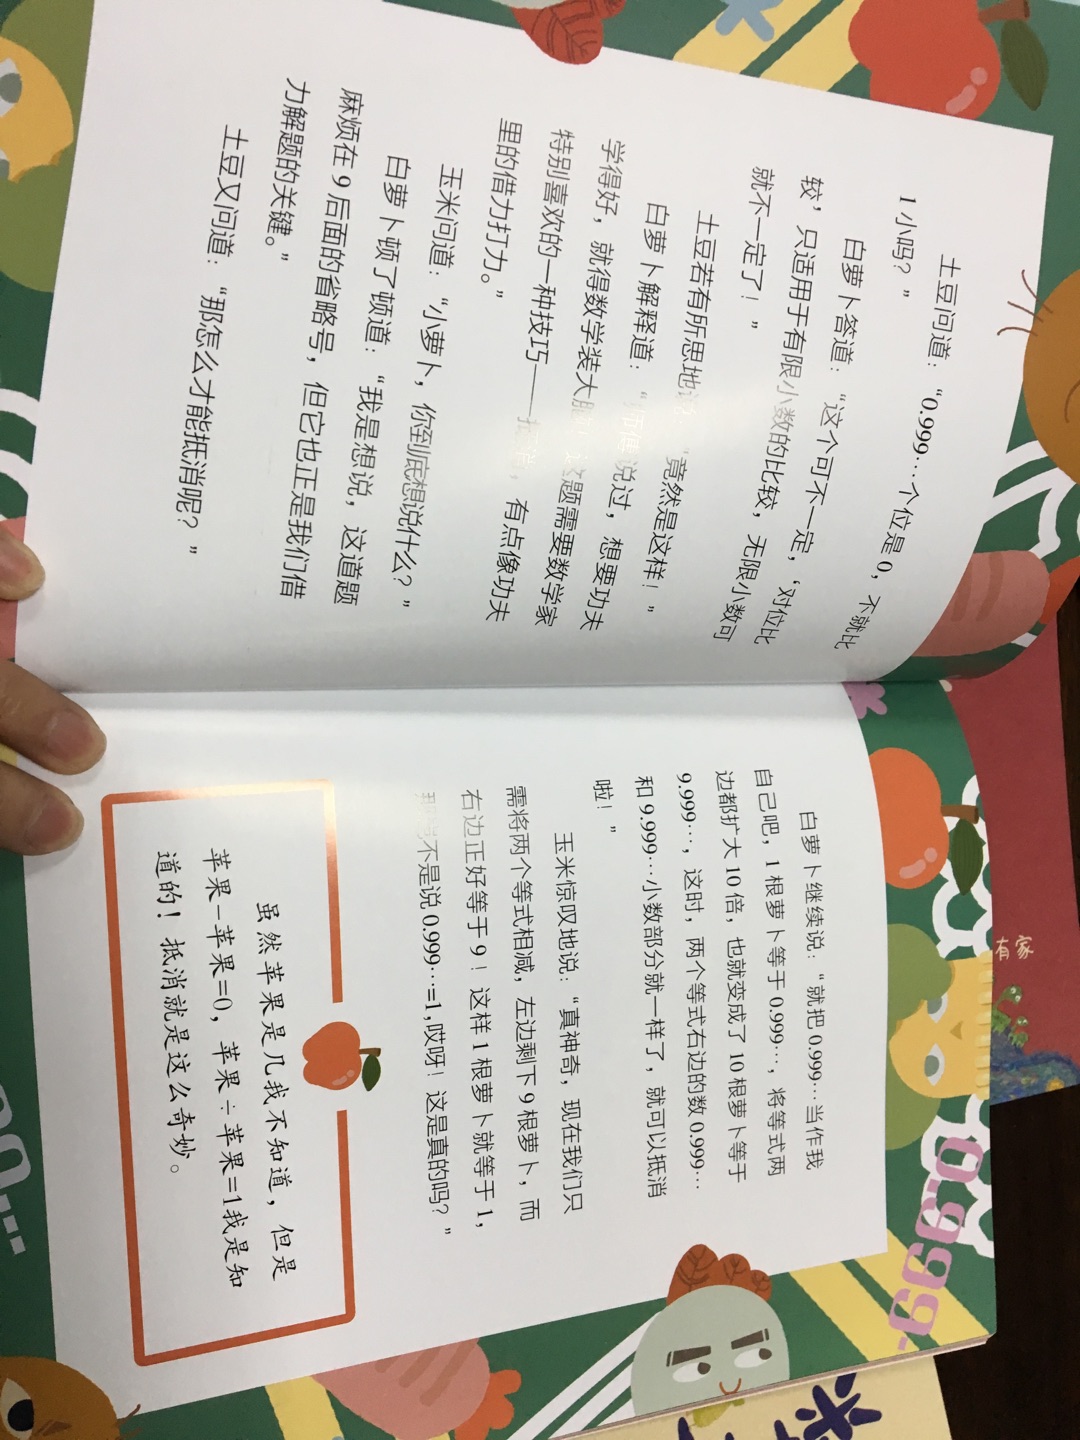 土豆问道：“0.999…个位是 0，不就比
1 小吗？”
白萝卜答道：“这个可不一定，‘对位比
较，只适用于有限小数的比较，无限小数可
就不一定了！”
土豆若有所思地说：“竟然是这样！”
白萝卜解释道：“师傅说过，想要功夫
学得好，就得数学装大脑，这题需要数学家
特别喜欢的一种技巧——抵消，有点像功夫
里的借力打力。”
玉米问道：“小萝卜，你到底想说什么？”
白萝卜顿了顿道：“我是想说，这道题
麻烦在 9 后面的省略号，但它也正是我们借
力解题的关键。”
土豆又问道：“那怎么才能抵消呢？”
白萝卜继续说：“就把 0.999…当作我
自己吧，1 根萝卜等于 0.999…，将等式两
边都扩大 10 倍，也就变成了 10 根萝卜等于
9.999…，这时，两个等式右边的数 0.999…
和 9.999…小数部分就一样了，就可以抵消
啦！”
玉米惊叹地说：“真神奇，现在我们只
需将两个等式相减，左边剩下 9 根萝卜，而
右边正好等于 9！这样 1 根萝卜就等于 1，
不是说 0.999…=1,哎呀！这是真的吗？”
虽然苹果是几我不知道，但是
苹果－苹果=0，苹果÷苹果=1我是知
道的！抵消就是这么奇妙。
0.999-
有家